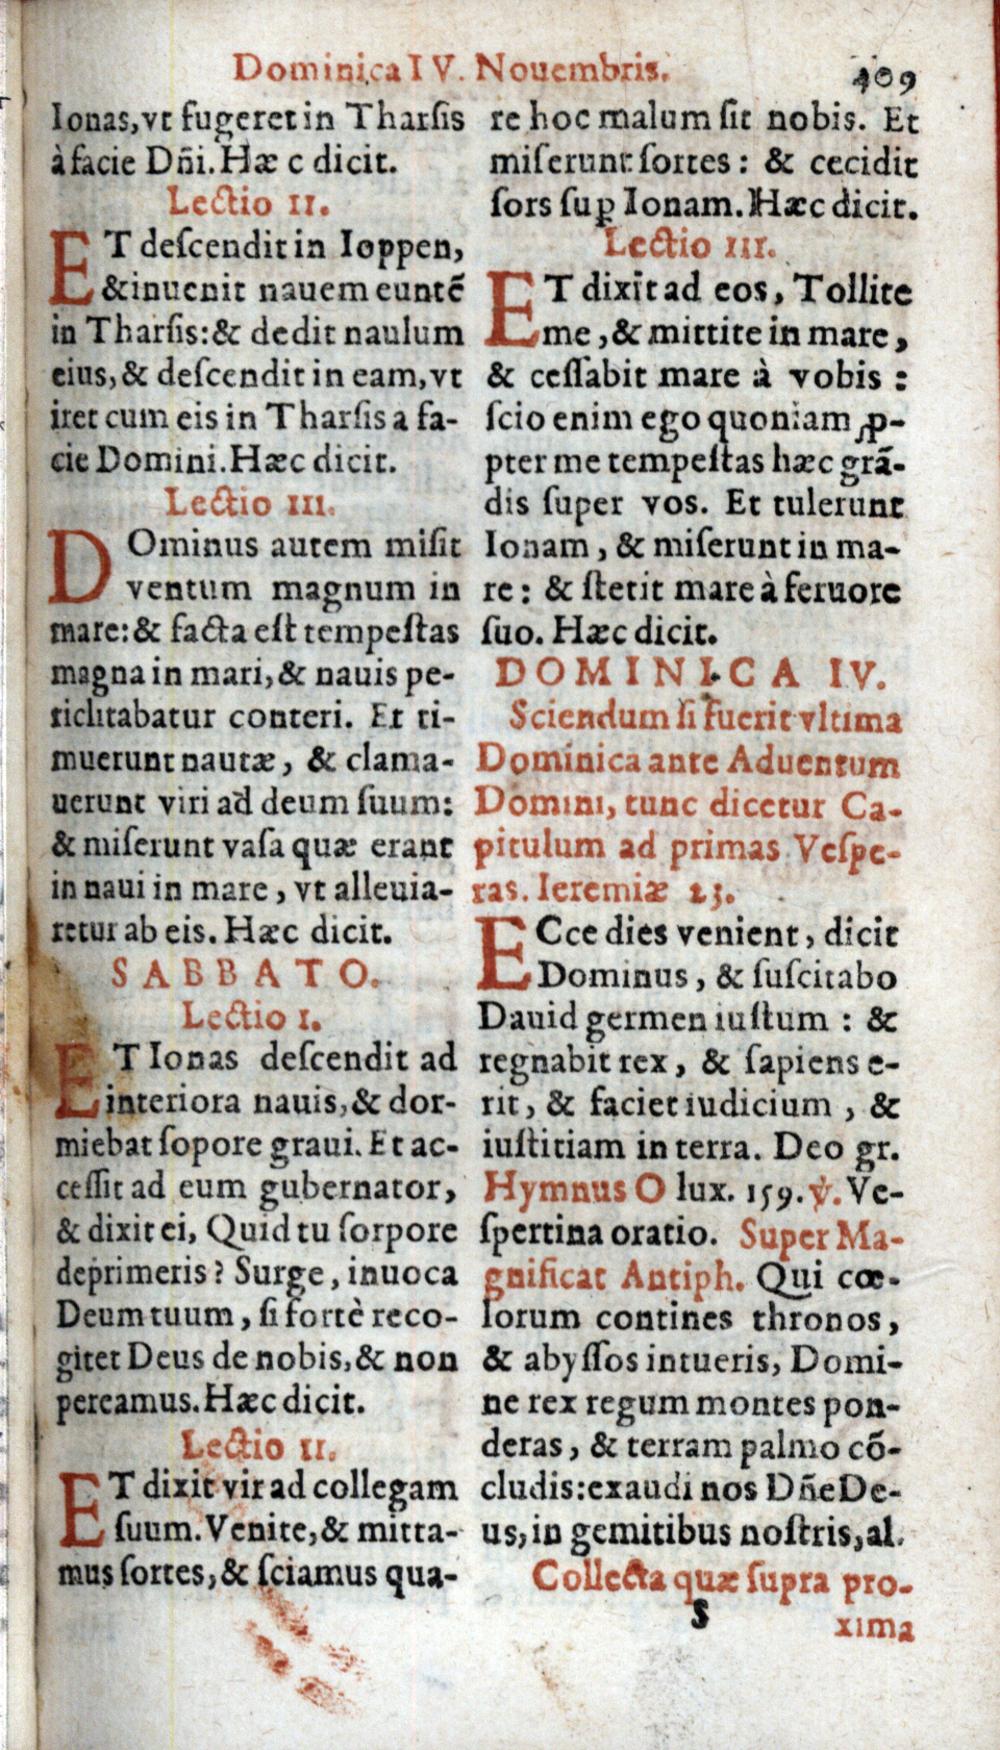 Dominica IV. Nouembris. 409
Ionas, vt fugeret in Tharſis
à facie Dñi. Hæ c dicit.
Lectio II.
ET deſcendit in Ioppen,
& inuenit nauem euntẽ
in Tharſis: & dedit naulum
eius, & deſcendit in eam, vt
iret cum eis in Tharſis a fa-
cie Domini. Hæc dicit.
Lectio III.
DOminus autem miſit
ventum magnum in
mare: & facta eſt tempeſtas
magna in mari, & nauis pe-
riclitabatur conteri. Et ti-
muerunt nautæ, & clama-
uerunt viri ad deum ſuum:
& miſerunt vaſa quæ erant
in naui in mare, vt alleuia-
retur ab eis. Hæc dicit.
SABBATO.
Lectio I.
ET Ionas deſcendit ad
interiora nauis, & dor-
miebat ſopore graui. Et ac-
ceſſit ad eum gubernator,
& dixit ei, Quid tu ſorpore
deprimeris? Surge, inuoca
Deum tuum, ſi fortè reco-
gitet Deus de nobis, & non
pereamus. Hæc dicit.
Lectio II.
ET dixit vir ad collegam
ſuum. Venite, & mitta-
mus ſortes, & ſciamus qua-
re hoc malum ſit nobis. Et
miſerunt ſortes: & cecidit
ſors ſuꝑ Ionam. Hæc dicit.
Lectio III.
ET dixit ad eos, Tollite
me, & mittite in mare,
& ceſſabit mare à vobis:
ſcio enim ego quoniam ꝓ-
pter me tempeſtas hæc grã-
dis ſuper vos. Et tulerunt
Ionam, & miſerunt in ma-
re: & ſtetit mare à feruore
ſuo. Hæc dicit.
DOMINICA IV.
Sciendum ſi fuerit vltima
Dominica ante Aduentum
Domini, tunc dicetur Ca-
pitulum ad primas Veſpe-
ras. Ieremiæ 23.
ECce dies venient, dicit
Dominus, & ſuſcitabo
Dauid germen iuſtum: &
regnabit rex, & ſapiens e-
rit, & faciet iudicium, &
iuſtitiam in terra. Deo gr.
Hymnus O lux. 159. ℣. Ve-
ſpertina oratio. Super Ma-
gnificat Antiph. Qui cœ-
lorum contines thronos,
& abyſſos intueris, Domi-
ne rex regum montes pon-
deras, & terram palmo cõ-
cludis: exaudi nos Dñe De-
us, in gemitibus noſtris, al.
Collecta quæ ſupra pro-
S xima